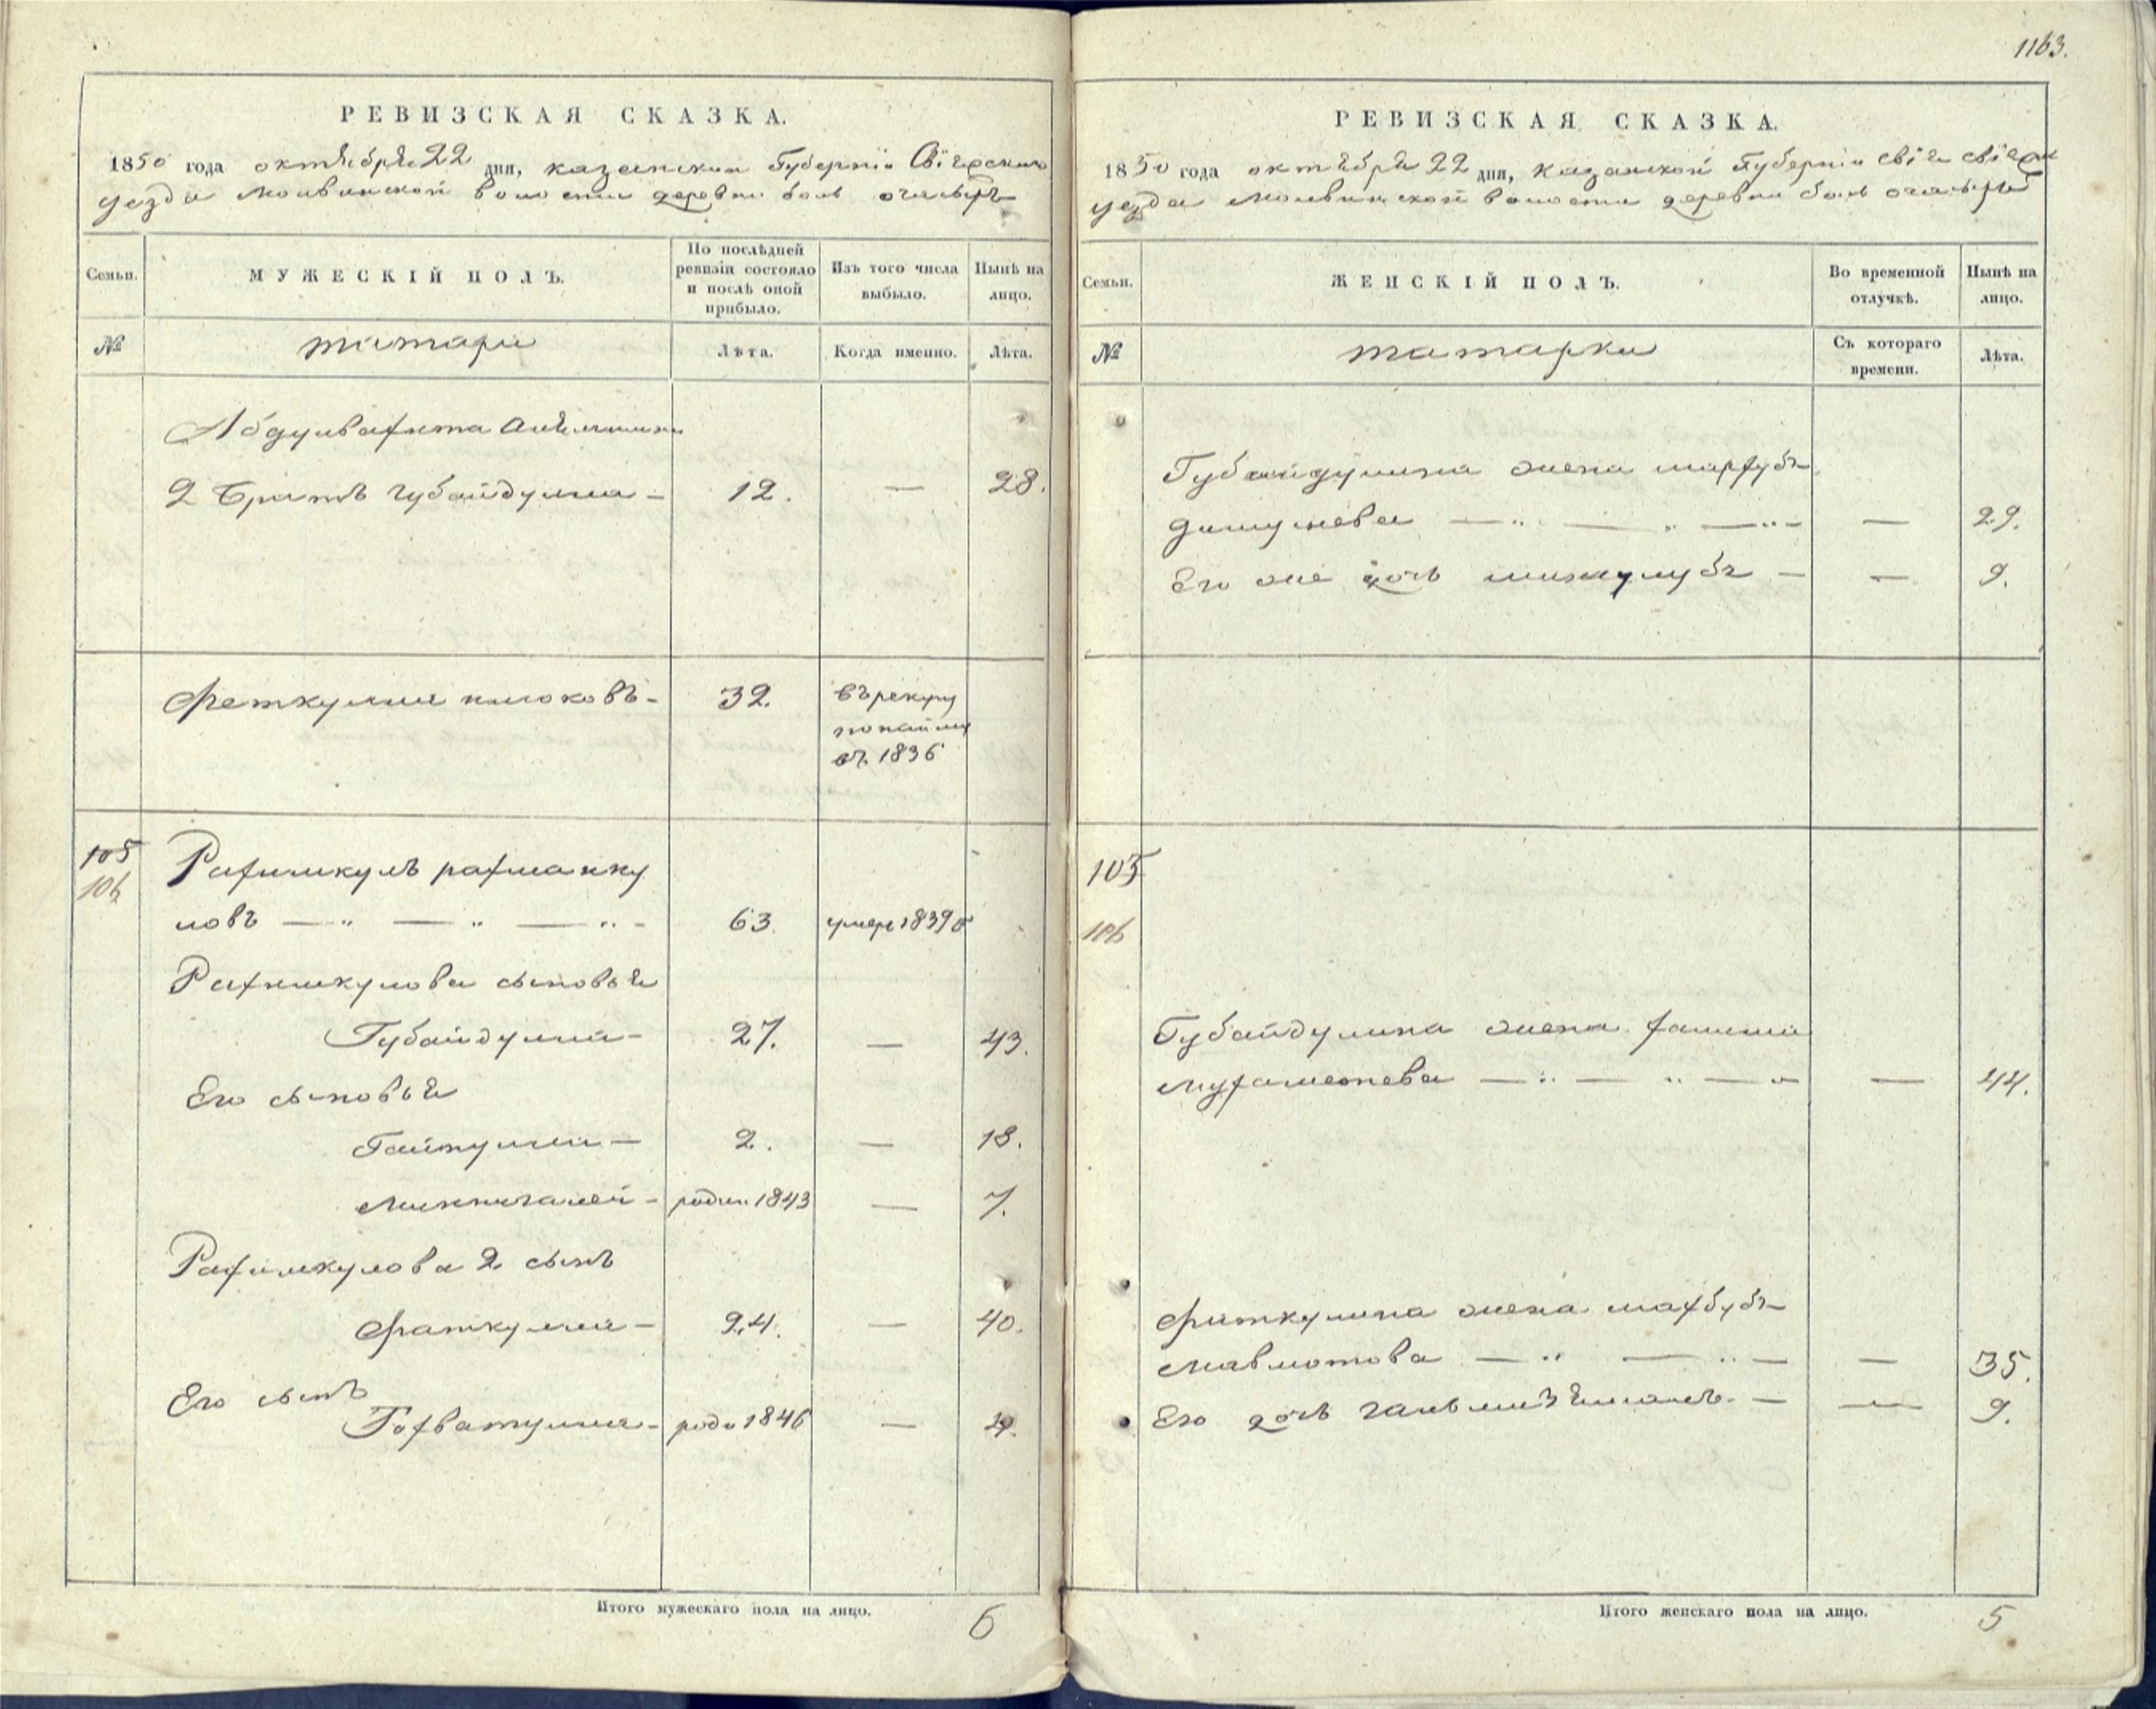 1163.
РЕВИЗСКАЯ СКАЗКА.
1850 года октября 22 дня, казанской Губернии Свіяжскаго
уезда Молвинской волости деревни бол
МУЖЕСКІЙ ПОЛЪ.
Семьи.
По послѣдней ревизіи состояло и послѣ оной прибыло.
Изъ того числа выбыло.
Нынѣ на лицо.
№
татари
Лѣта.
Когда именно.
Лѣта.
Абдулвахита
2 братъ губайдулла — 12. — 28.
Феткулла 32. въ рекруты
по найму
въ 1836
105
106
Рахимкулъ рахманку
ловъ — " — " — " - 63. умеръ 1839
Рахимкулова сыновья
Губайдулла - 27. — 43.
Его сыновья
Гайнулла — 2. — 18.
Миннигалей - родил 1843 — 7.
Рахимкулова 2 сынъ
Фаткулла — 24. — 40.
Его сынъ
Гофватулла - родил 1846 — 4.
Итого мужескаго пола на лицо. 6
РЕВИЗСКАЯ СКАЗКА.
1850 года октября 22 дня, Казанской Губерніи
уезда Молвинской волости деревни бол
Семьи.
ЖЕНСКІЙ ПОЛЪ.
Во временной отлучкѣ.
Нынѣ на лицо.
№
татарки
Съ котораго времени.
Лѣта.
Губайдуллина жена
— " — " — " - — 29.
Его же дочь — — 9.
105
106
Губайдуллина жена
мухаметева — " — " — " — 44.
Фаткуллина жена махбубъ
— " — " — — 35.
Его дочь — — 9.
Итого женскаго пола на лицо. 5